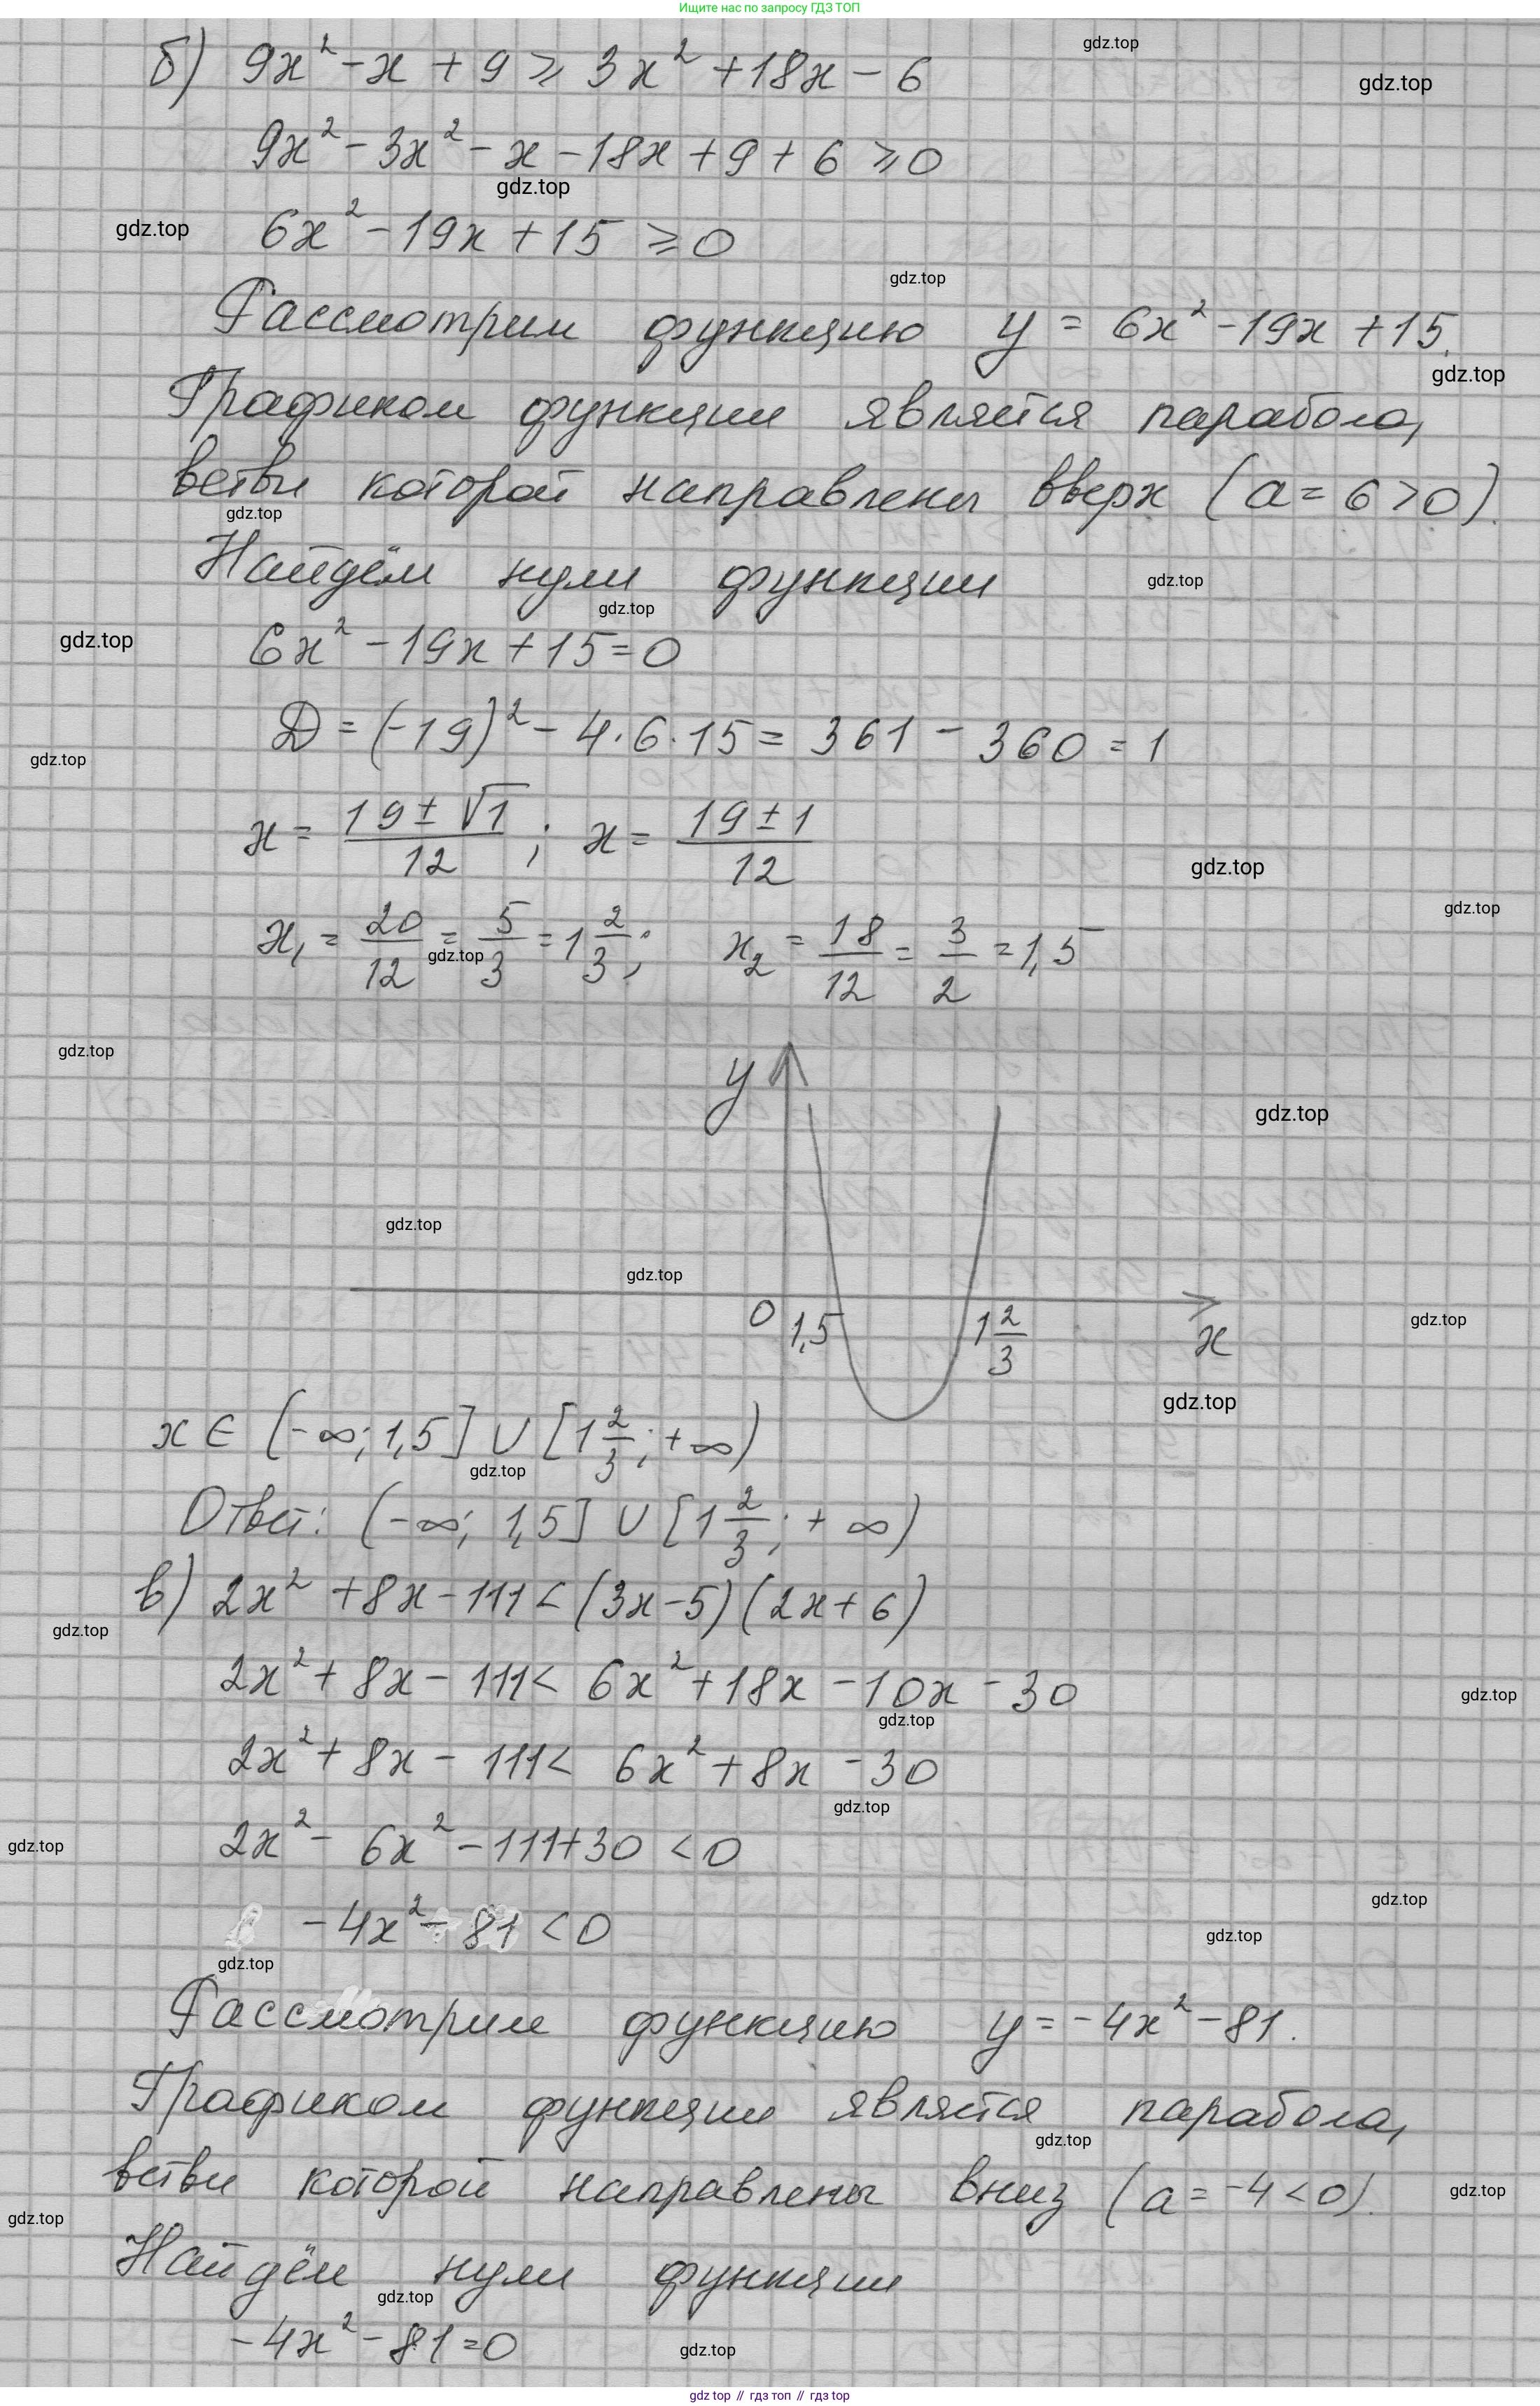 Ищите нас по запросу ГДЗ ТОП
б) 9x² - x + 9 ≥ 3x² + 18x - 6
9x² - 3x² - x - 18x + 9 + 6 ≥ 0
6x² - 19x + 15 ≥ 0
Рассмотрим функцию y = 6x² - 19x + 15.
Графиком функции является парабола,
ветви которой направлены вверх (a = 6 > 0).
Найдём нули функции
6x² - 19x + 15 = 0
D = (-19)² - 4·6·15 = 361 - 360 = 1
x = (19 ± √1)/12 ; x = (19 ± 1)/12
x₁ = 20/12 = 5/3 = 1 2/3 ; x₂ = 18/12 = 3/2 = 1,5
y
0 1,5 1 2/3 x
x ∈ (-∞; 1,5] ∪ [1 2/3 ; +∞)
Ответ: (-∞; 1,5] ∪ [1 2/3 ; +∞)
в) 2x² + 8x - 111 < (3x - 5)(2x + 6)
2x² + 8x - 111 < 6x² + 18x - 10x - 30
2x² + 8x - 111 < 6x² + 8x - 30
2x² - 6x² - 111 + 30 < 0
-4x² - 81 < 0
Рассмотрим функцию y = -4x² - 81.
Графиком функции является парабола,
ветви которой направлены вниз (a = -4 < 0).
Найдём нули функции
-4x² - 81 = 0
gdz top // гдз топ // гдз top